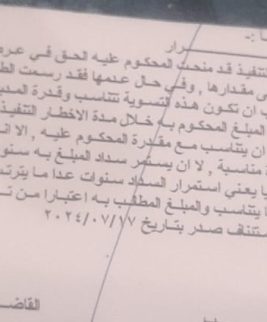 ـرار
لتنفيذ قد منحت المحكوم عليه الحق في عرض
ى مقدارها , وفي حال عدمها فقد رسمت الط
ب ان تكون هذه التسوية تتناسب وقدرة المد
المبلغ المحكوم به خلال مدة الاخطار التنفيذ
ان يتناسب مع مقدرة المحكوم عليه , الا ان
مناسبة , لا ان يستمر سداد المبلغ به سنو
يا يعني استمرار السداد سنوات عدا ما يترتب
ا يتناسب والمبلغ المطالب به اعتبارا من تـ
ستئناف صدر بتاريخ ٢٠٢٤/٠٧/١٧
القاضـ